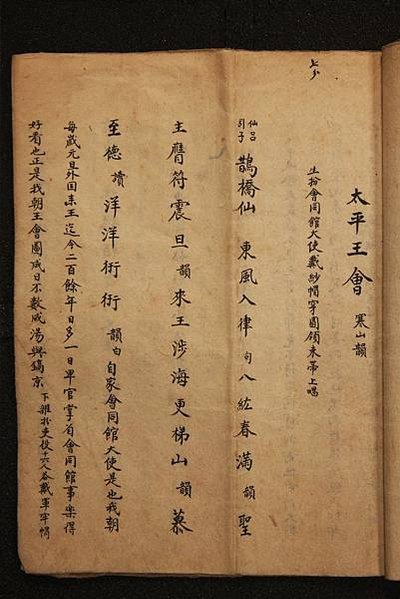 太平王會 寒山韻
生扮會同館大使戴紗帽穿圓領束帶上唱
仙呂引子 鵲橋仙 東風入律 句 八紘春滿 韻 聖
主膺符震旦 韻 來王涉海更梯山 韻 慕
至德 讀 洋洋衎衎 韻 白 自家會同館大使是也我朝
每歲元旦外国来王迄今二百餘年日多一日卑官掌會同館事樂得
好看也正是我朝王會圖成日不數成湯與鎬京 下雜扮吏役十六人各戴軍牢帽